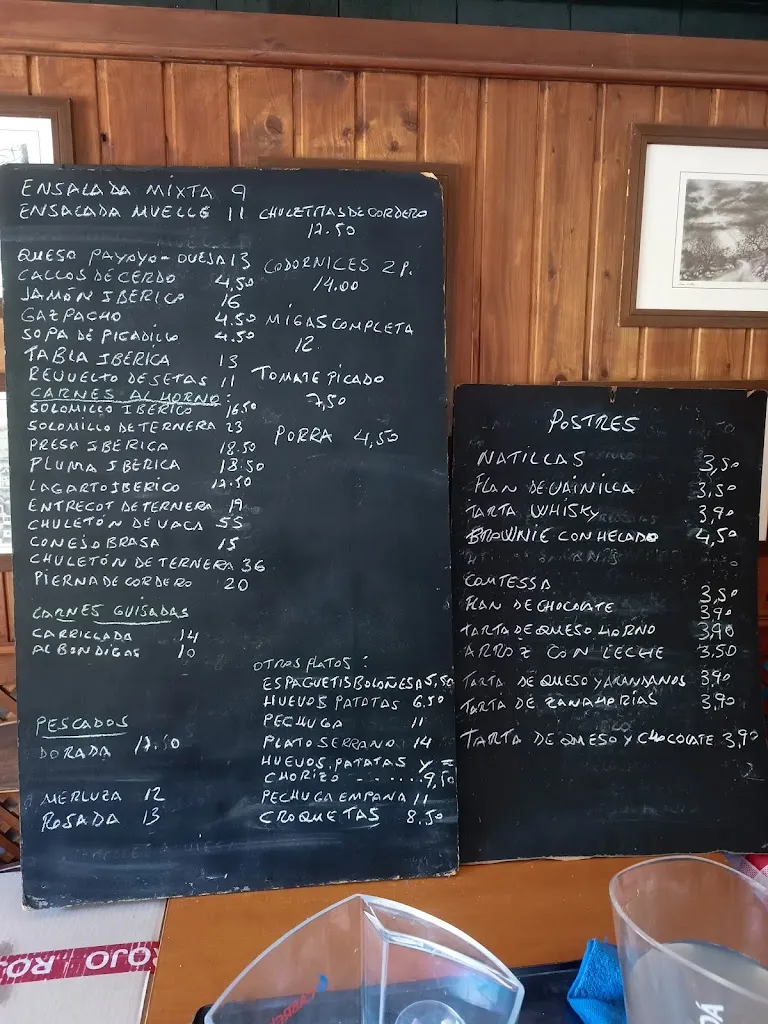 ENSALADA MIXTA 9
ENSALADA MUELLE 11
QUESO PAYOYO-OVEJA 13
CALLOS DE CERDO 4,50
JAMÓN IBERICO 16
GAZPACHO 4.50
SOPA DE PICADILLO 4.50
TABLA IBERICA 13
REVUELTO DE SETAS 11
CARNES AL HORNO:
SOLOMILLO IBERICO 16.50
SOLOMILLO DE TERNERA 23
PRESA IBERICA 18.50
PLUMA IBERICA 18.50
LAGARTO IBERICO 17.50
ENTRECOT DE TERNERA 19
CHULETÓN DE VACA 55
CONEJO BRASA 15
CHULETÓN DE TERNERA 36
PIERNA DE CORDERO 20
CARNES GUISADAS
CARRILLADA 14
ALBONDIGAS 10
PESCADOS
DORADA 17.50
MERLUZA 12
ROSADA 13
CHULETITAS DE CORDERO
17.50
CODORNICES 2 P.
14.00
MIGAS COMPLETA
12
TOMATE PICADO
7,50
PORRA 4,50
OTROS PLATOS:
ESPAGUETIS BOLOÑESA 5,50
HUEVOS PATATAS 6.50
PECHUGA 11
PLATO SERRANO 14
HUEVOS, PATATAS Y =
CHORIZO ------ 9,50
PECHUGA EMPANA 11
CROQUETAS 8.50
POSTRES
NATILLAS 3,50
FLAN DE VAINILLA 3,50
TARTA WHISKY 3,90
BROWNIE CON HELADO 4,50
COMTESSA 3,50
FLAN DE CHOCOLATE 3,90
TARTA DE QUESO HORNO 3,90
ARROZ CON LECHE 3.50
TARTA DE QUESO Y ARANDANOS 3,90
TARTA DE ZANAHORIAS 3,90
TARTA DE QUESO Y CHOCOLATE 3,90
OJO RO